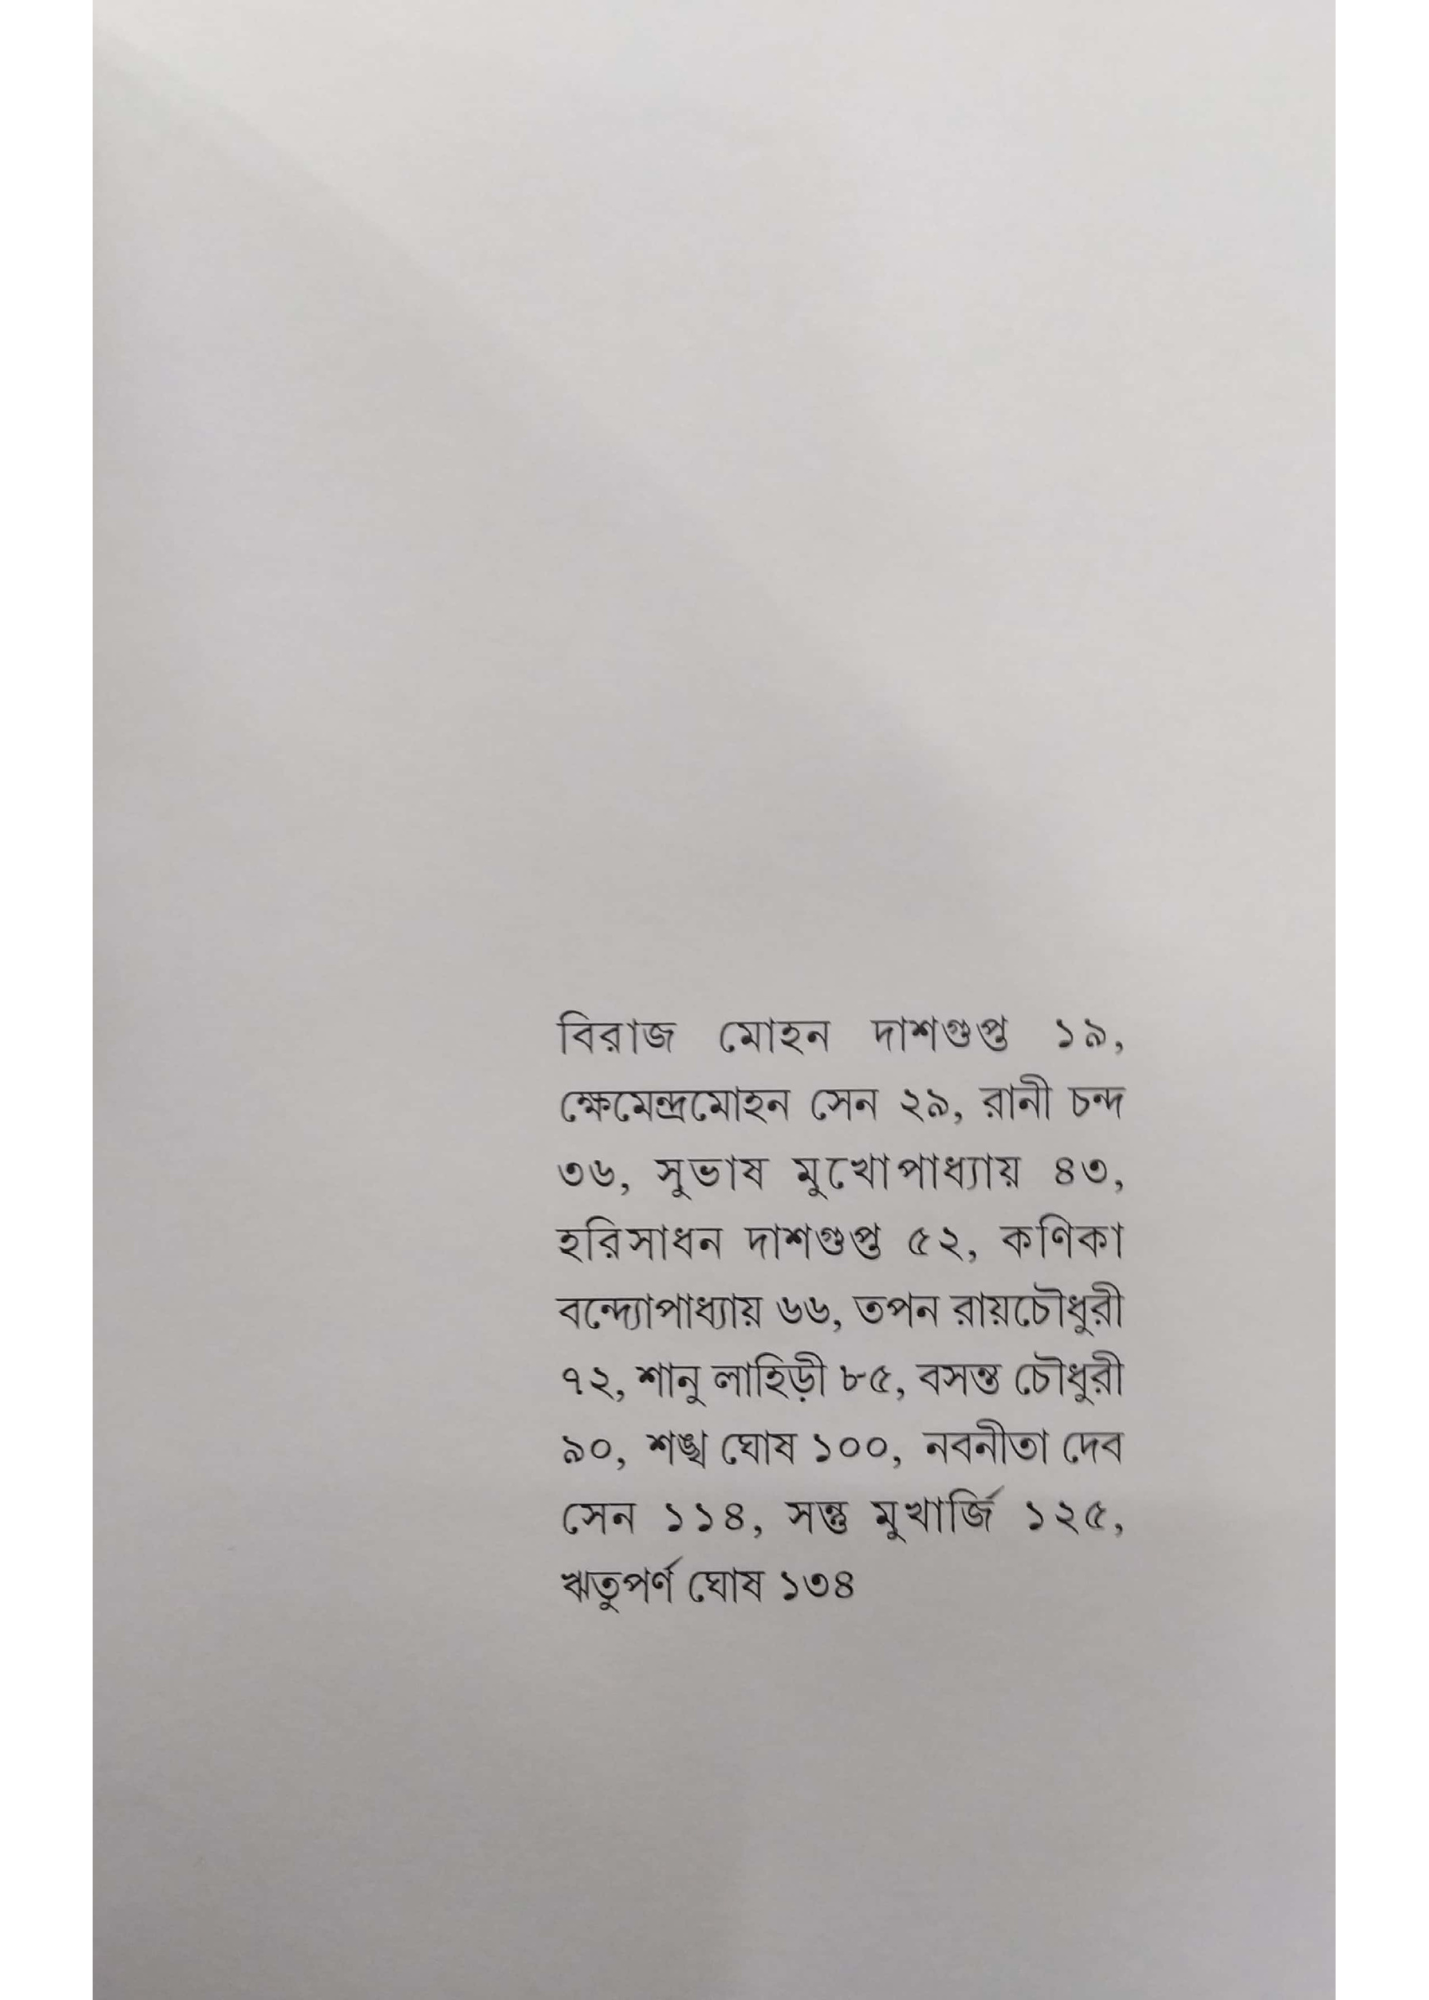 বিরাজ মোহন দাশগুপ্ত ১৯,
ক্ষেমেন্দ্রমোহন সেন ২৯, রানী চন্দ
৩৬, সুভাষ মুখোপাধ্যায় ৪৩,
হরিসাধন দাশগুপ্ত ৫২, কণিকা
বন্দ্যোপাধ্যায় ৬৬, তপন রায়চৌধুরী
৭২, শানু লাহিড়ী ৮৫, বসন্ত চৌধুরী
৯০, শঙ্খ ঘোষ ১০০, নবনীতা দেব
সেন ১১৪, সন্তু মুখার্জি ১২৫,
ঋতুপর্ণ ঘোষ ১৩৪